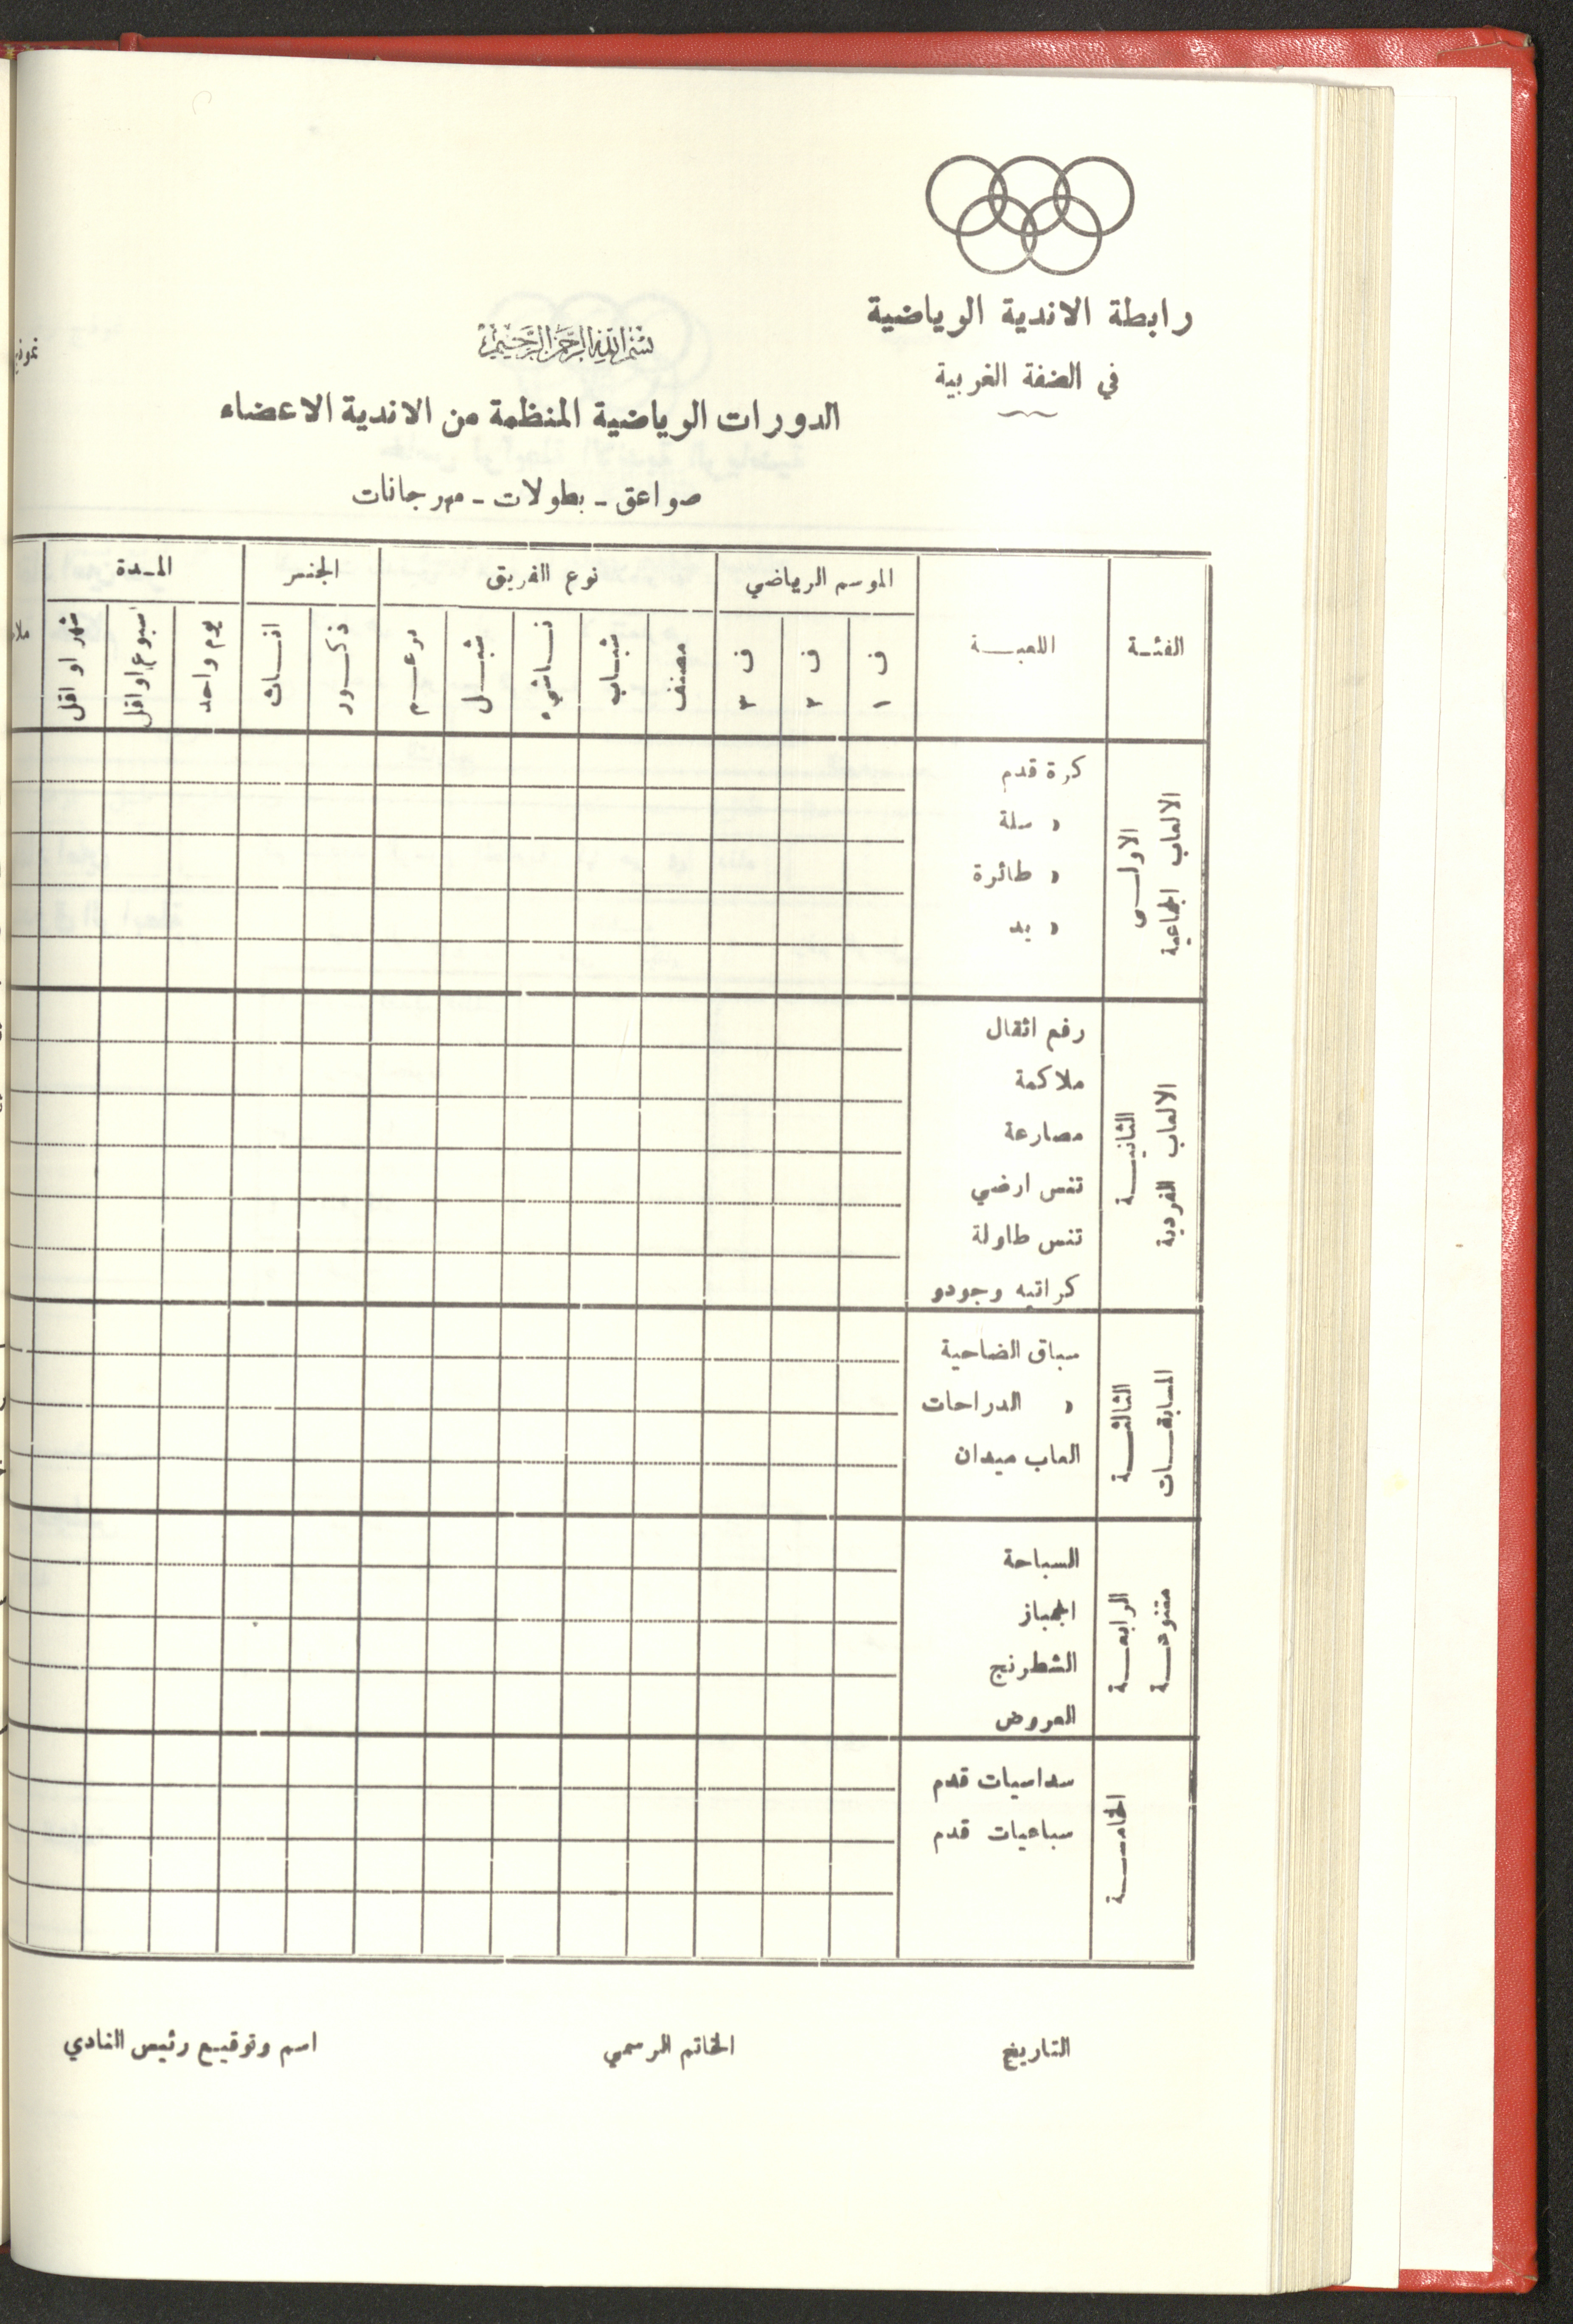 رابطة الاندية الرياضية
في الضفة الغربية
بسم الله الرحمن الرحيم
الدورات الرياضية المنظمة من الاندية الاعضاء
صواعق - بطولات - مهرجانات
الفئـة اللعبـــة الموسم الرياضي نوع الفريق الجنس المـدة
ف ١ ف ٢ ف ٣ مصنف شبـاب نــاشىء شبــل برعــم ذكــور انــاث يوم واحد اسبوع او اقل شهر او اقل
الاولــى الالعاب الجماعية
كرة قدم
» سلة
» طائرة
» يد
الثانيــة الالعاب الفردية
رفع اثقال
ملاكمة
مصارعة
تنس ارضي
تنس طاولة
كراتيه وجودو
الثالثــة المسابقــات
سباق الضاحية
» الدراجات
العاب ميدان
الرابعــة متنوعــة
السباحة
الجمباز
الشطرنج
العروض
الخامســة
سداسيات قدم
سباعيات قدم
التاريخ الخاتم الرسمي اسم وتوقيـع رئيس النادي